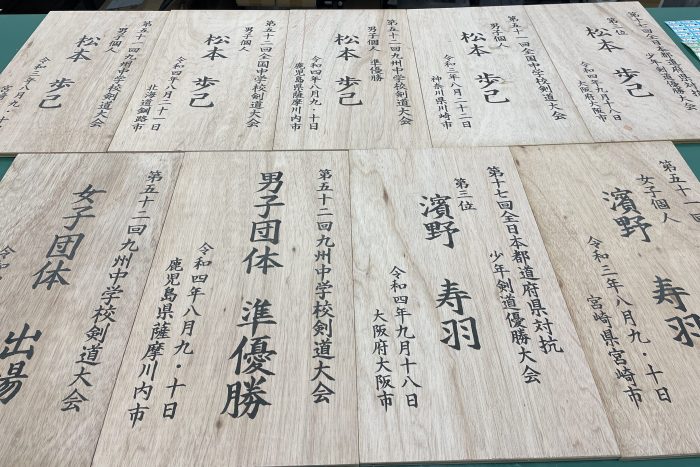 第十七回全日本都道府県対抗
少年剣道優勝大会
第三位
松本 歩己
令和四年九月十八日
大阪府大阪市
第五十一回全国中学校剣道大会
男子個人
松本 歩己
令和三年八月二十二日
神奈川県川崎市
第五十二回九州中学校剣道大会
男子個人 準優勝
松本 歩己
令和四年八月九・十日
鹿児島県薩摩川内市
第五十二回全国中学校剣道大会
男子個人
松本 歩己
令和四年八月二十一日
北海道釧路市
第五十一回九州中学校剣道大会
男子個人
松本 歩己
令和三年八月九・十日
宮崎
第五十一
女子個人
濱野 寿羽
令和三年八月九・十日
宮崎県宮崎市
第十七回全日本都道府県対抗
少年剣道優勝大会
第三位
濱野 寿羽
令和四年九月十八日
大阪府大阪市
第五十二回九州中学校剣道大会
男子団体 準優勝
令和四年八月九・十日
鹿児島県薩摩川内市
第五十二回九州中学校剣道大会
女子団体 出場
令和